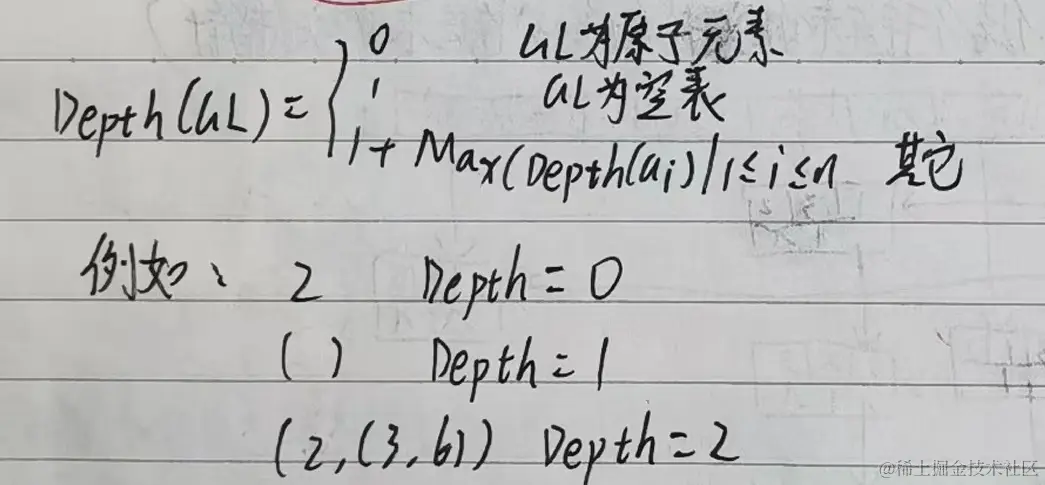 Depth(GL) = { 0 GL为原子元素
1 GL为空表
1 + Max(Depth(ai) | 1≤i≤n 其它
例如、 2 Depth = 0
( ) Depth = 1
(2,(3,6)) Depth = 2
@稀土掘金技术社区